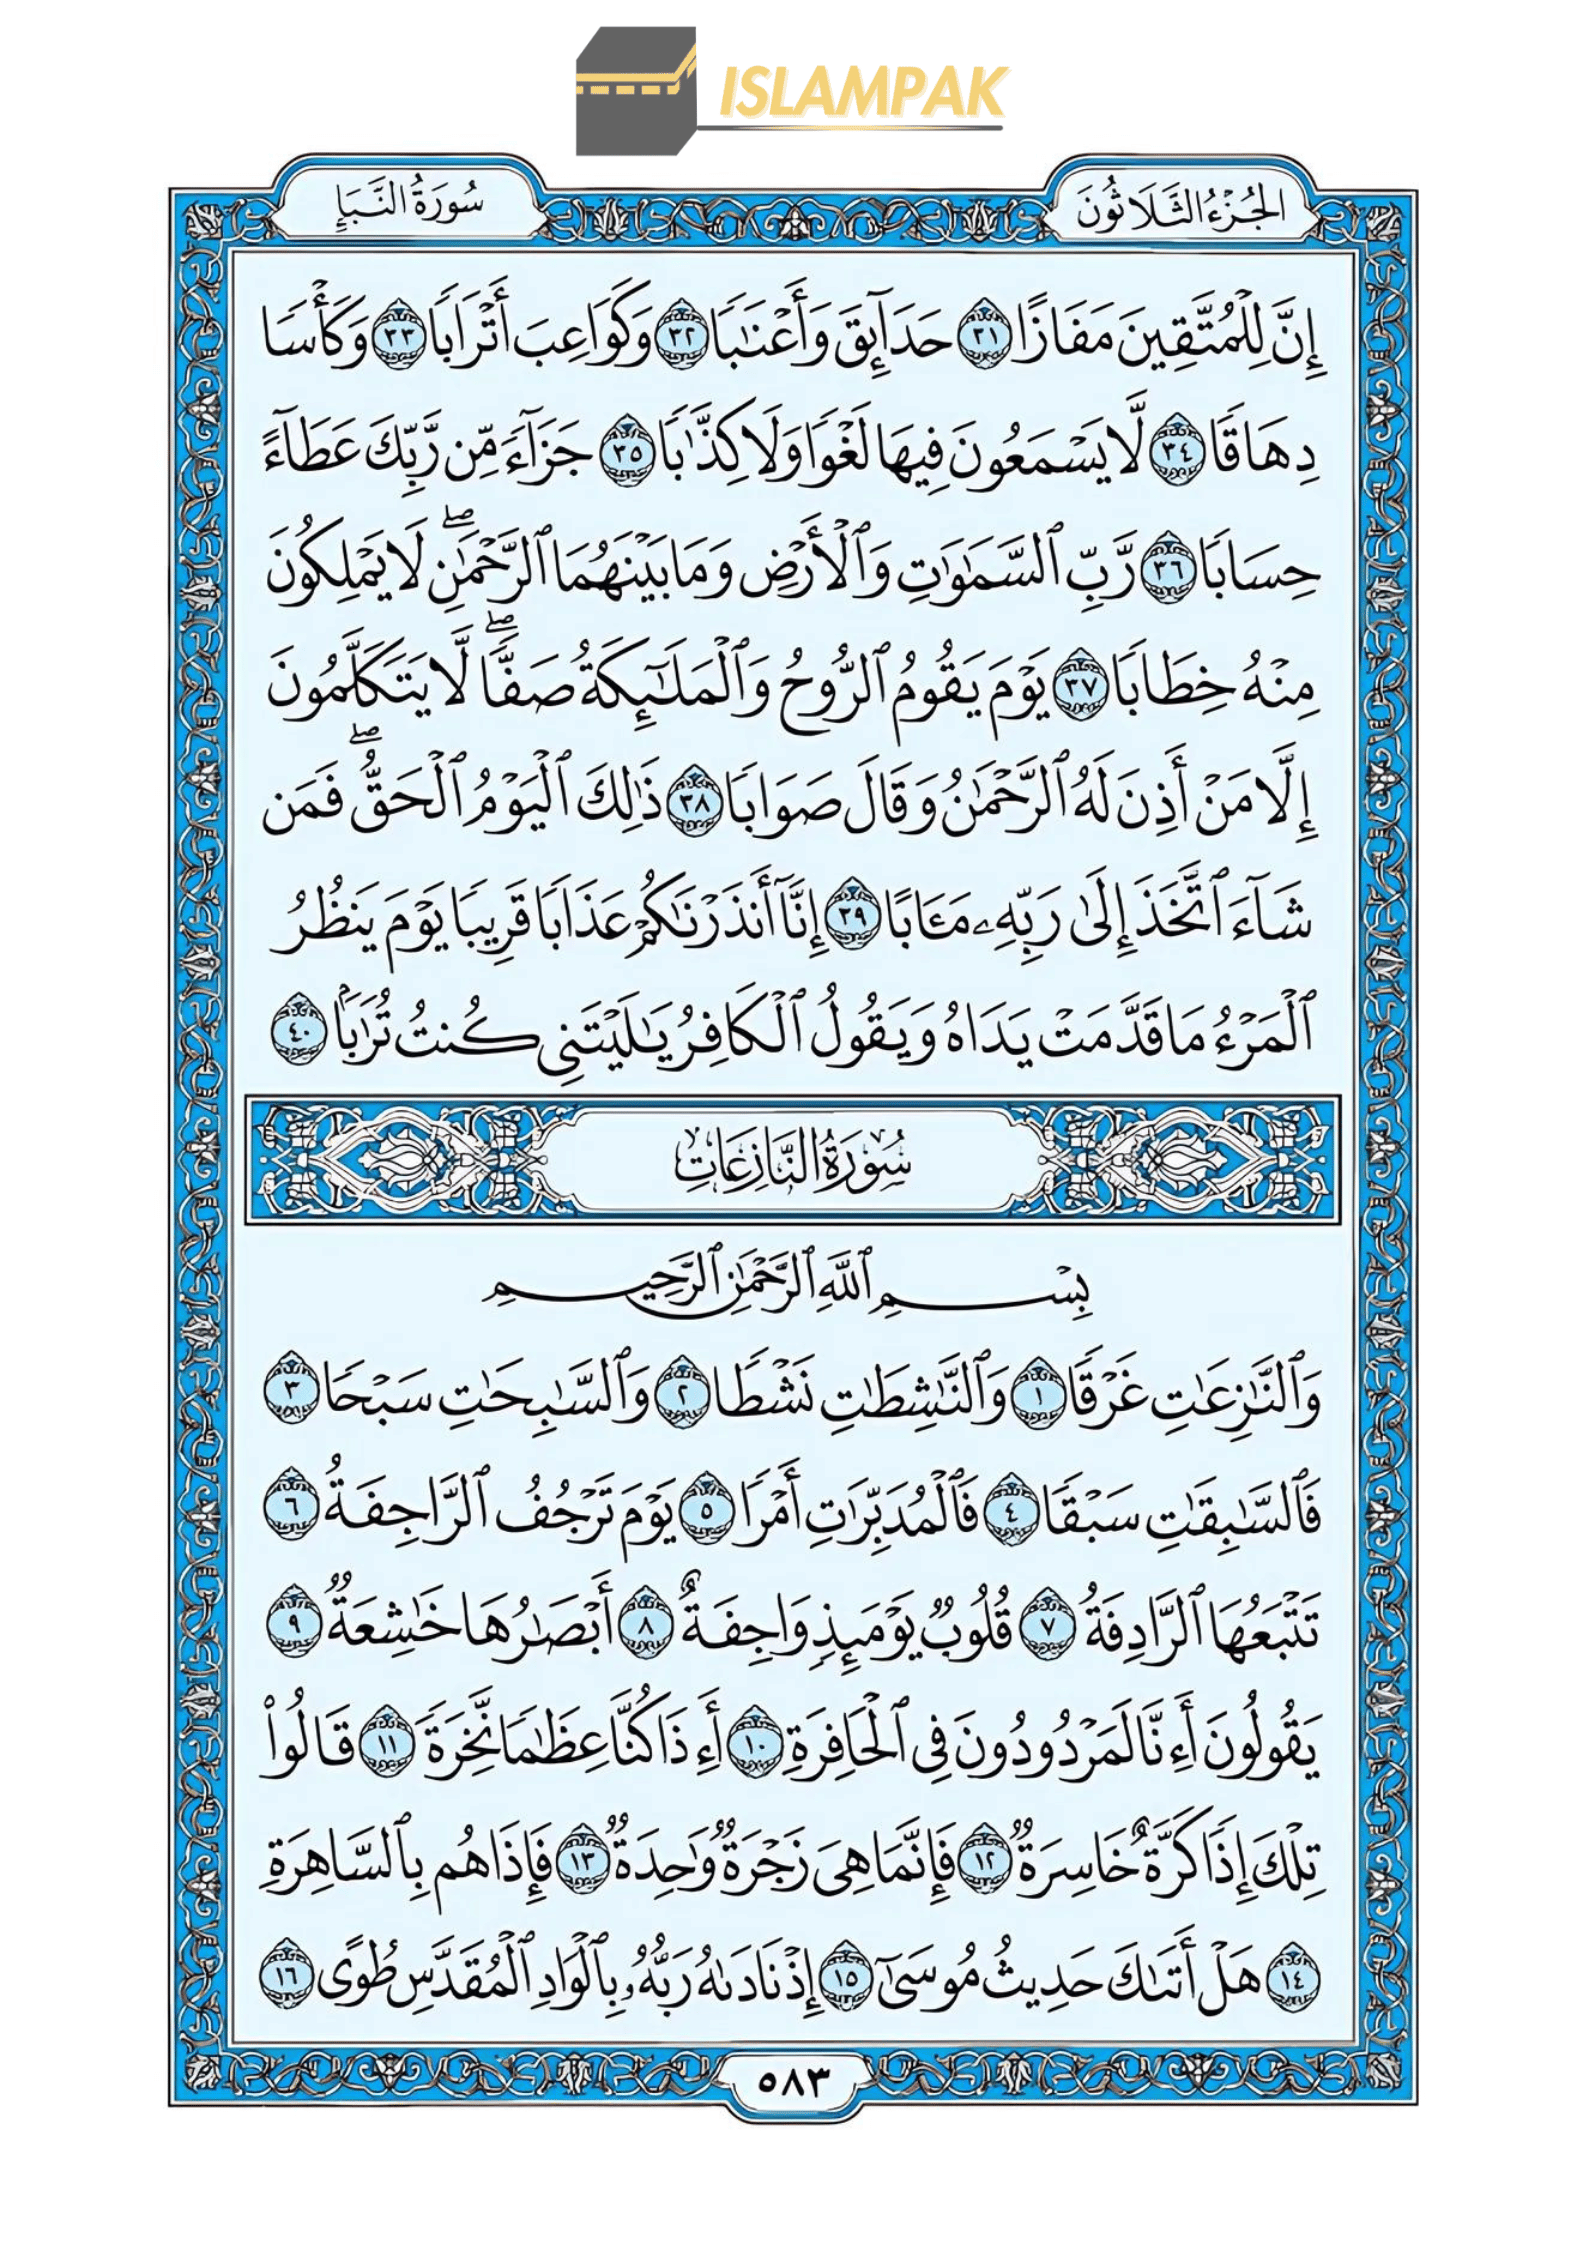 ISLAMPAK
الجُزْءُ الثَّلَاثُونَ
سُورَةُ النَّبَإِ
إِنَّ لِلْمُتَّقِينَ مَفَازًا ٣١ حَدَآئِقَ وَأَعْنَٰبًا ٣٢ وَكَوَاعِبَ أَتْرَابًا ٣٣ وَكَأْسًا
دِهَاقًا ٣٤ لَّا يَسْمَعُونَ فِيهَا لَغْوًا وَلَا كِذَّٰبًا ٣٥ جَزَآءً مِّن رَّبِّكَ عَطَآءً
حِسَابًا ٣٦ رَّبِّ ٱلسَّمَٰوَٰتِ وَٱلْأَرْضِ وَمَا بَيْنَهُمَا ٱلرَّحْمَٰنِۖ لَا يَمْلِكُونَ
مِنْهُ خِطَابًا ٣٧ يَوْمَ يَقُومُ ٱلرُّوحُ وَٱلْمَلَٰٓئِكَةُ صَفًّاۖ لَّا يَتَكَلَّمُونَ
إِلَّا مَنْ أَذِنَ لَهُ ٱلرَّحْمَٰنُ وَقَالَ صَوَابًا ٣٨ ذَٰلِكَ ٱلْيَوْمُ ٱلْحَقُّۖ فَمَن
شَآءَ ٱتَّخَذَ إِلَىٰ رَبِّهِۦ مَـَٔابًا ٣٩ إِنَّآ أَنذَرْنَٰكُمْ عَذَابًا قَرِيبًا يَوْمَ يَنظُرُ
ٱلْمَرْءُ مَا قَدَّمَتْ يَدَاهُ وَيَقُولُ ٱلْكَافِرُ يَٰلَيْتَنِى كُنتُ تُرَٰبًۢا ٤٠
سُورَةُ النَّازِعَاتِ
بِسْمِ ٱللَّهِ ٱلرَّحْمَٰنِ ٱلرَّحِيمِ
وَٱلنَّٰزِعَٰتِ غَرْقًا ١ وَٱلنَّٰشِطَٰتِ نَشْطًا ٢ وَٱلسَّٰبِحَٰتِ سَبْحًا ٣
فَٱلسَّٰبِقَٰتِ سَبْقًا ٤ فَٱلْمُدَبِّرَٰتِ أَمْرًا ٥ يَوْمَ تَرْجُفُ ٱلرَّاجِفَةُ ٦
تَتْبَعُهَا ٱلرَّادِفَةُ ٧ قُلُوبٌ يَوْمَئِذٍ وَاجِفَةٌ ٨ أَبْصَٰرُهَا خَٰشِعَةٌ ٩
يَقُولُونَ أَءِنَّا لَمَرْدُودُونَ فِى ٱلْحَافِرَةِ ١٠ أَءِذَا كُنَّا عِظَٰمًا نَّخِرَةً ١١ قَالُوا۟
تِلْكَ إِذًا كَرَّةٌ خَاسِرَةٌ ١٢ فَإِنَّمَا هِىَ زَجْرَةٌ وَٰحِدَةٌ ١٣ فَإِذَا هُم بِٱلسَّاهِرَةِ
١٤ هَلْ أَتَىٰكَ حَدِيثُ مُوسَىٰٓ ١٥ إِذْ نَادَىٰهُ رَبُّهُۥ بِٱلْوَادِ ٱلْمُقَدَّسِ طُوًى ١٦
٥٨٣